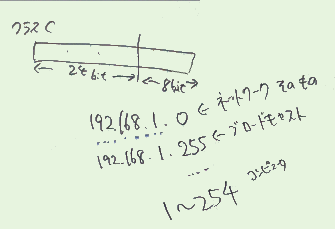 クラスC
24bit 8bit
192.168.1.0 ← ネットワークそのもの
192.168.1.255 ← ブロードキャスト
1〜254 コンピュータ